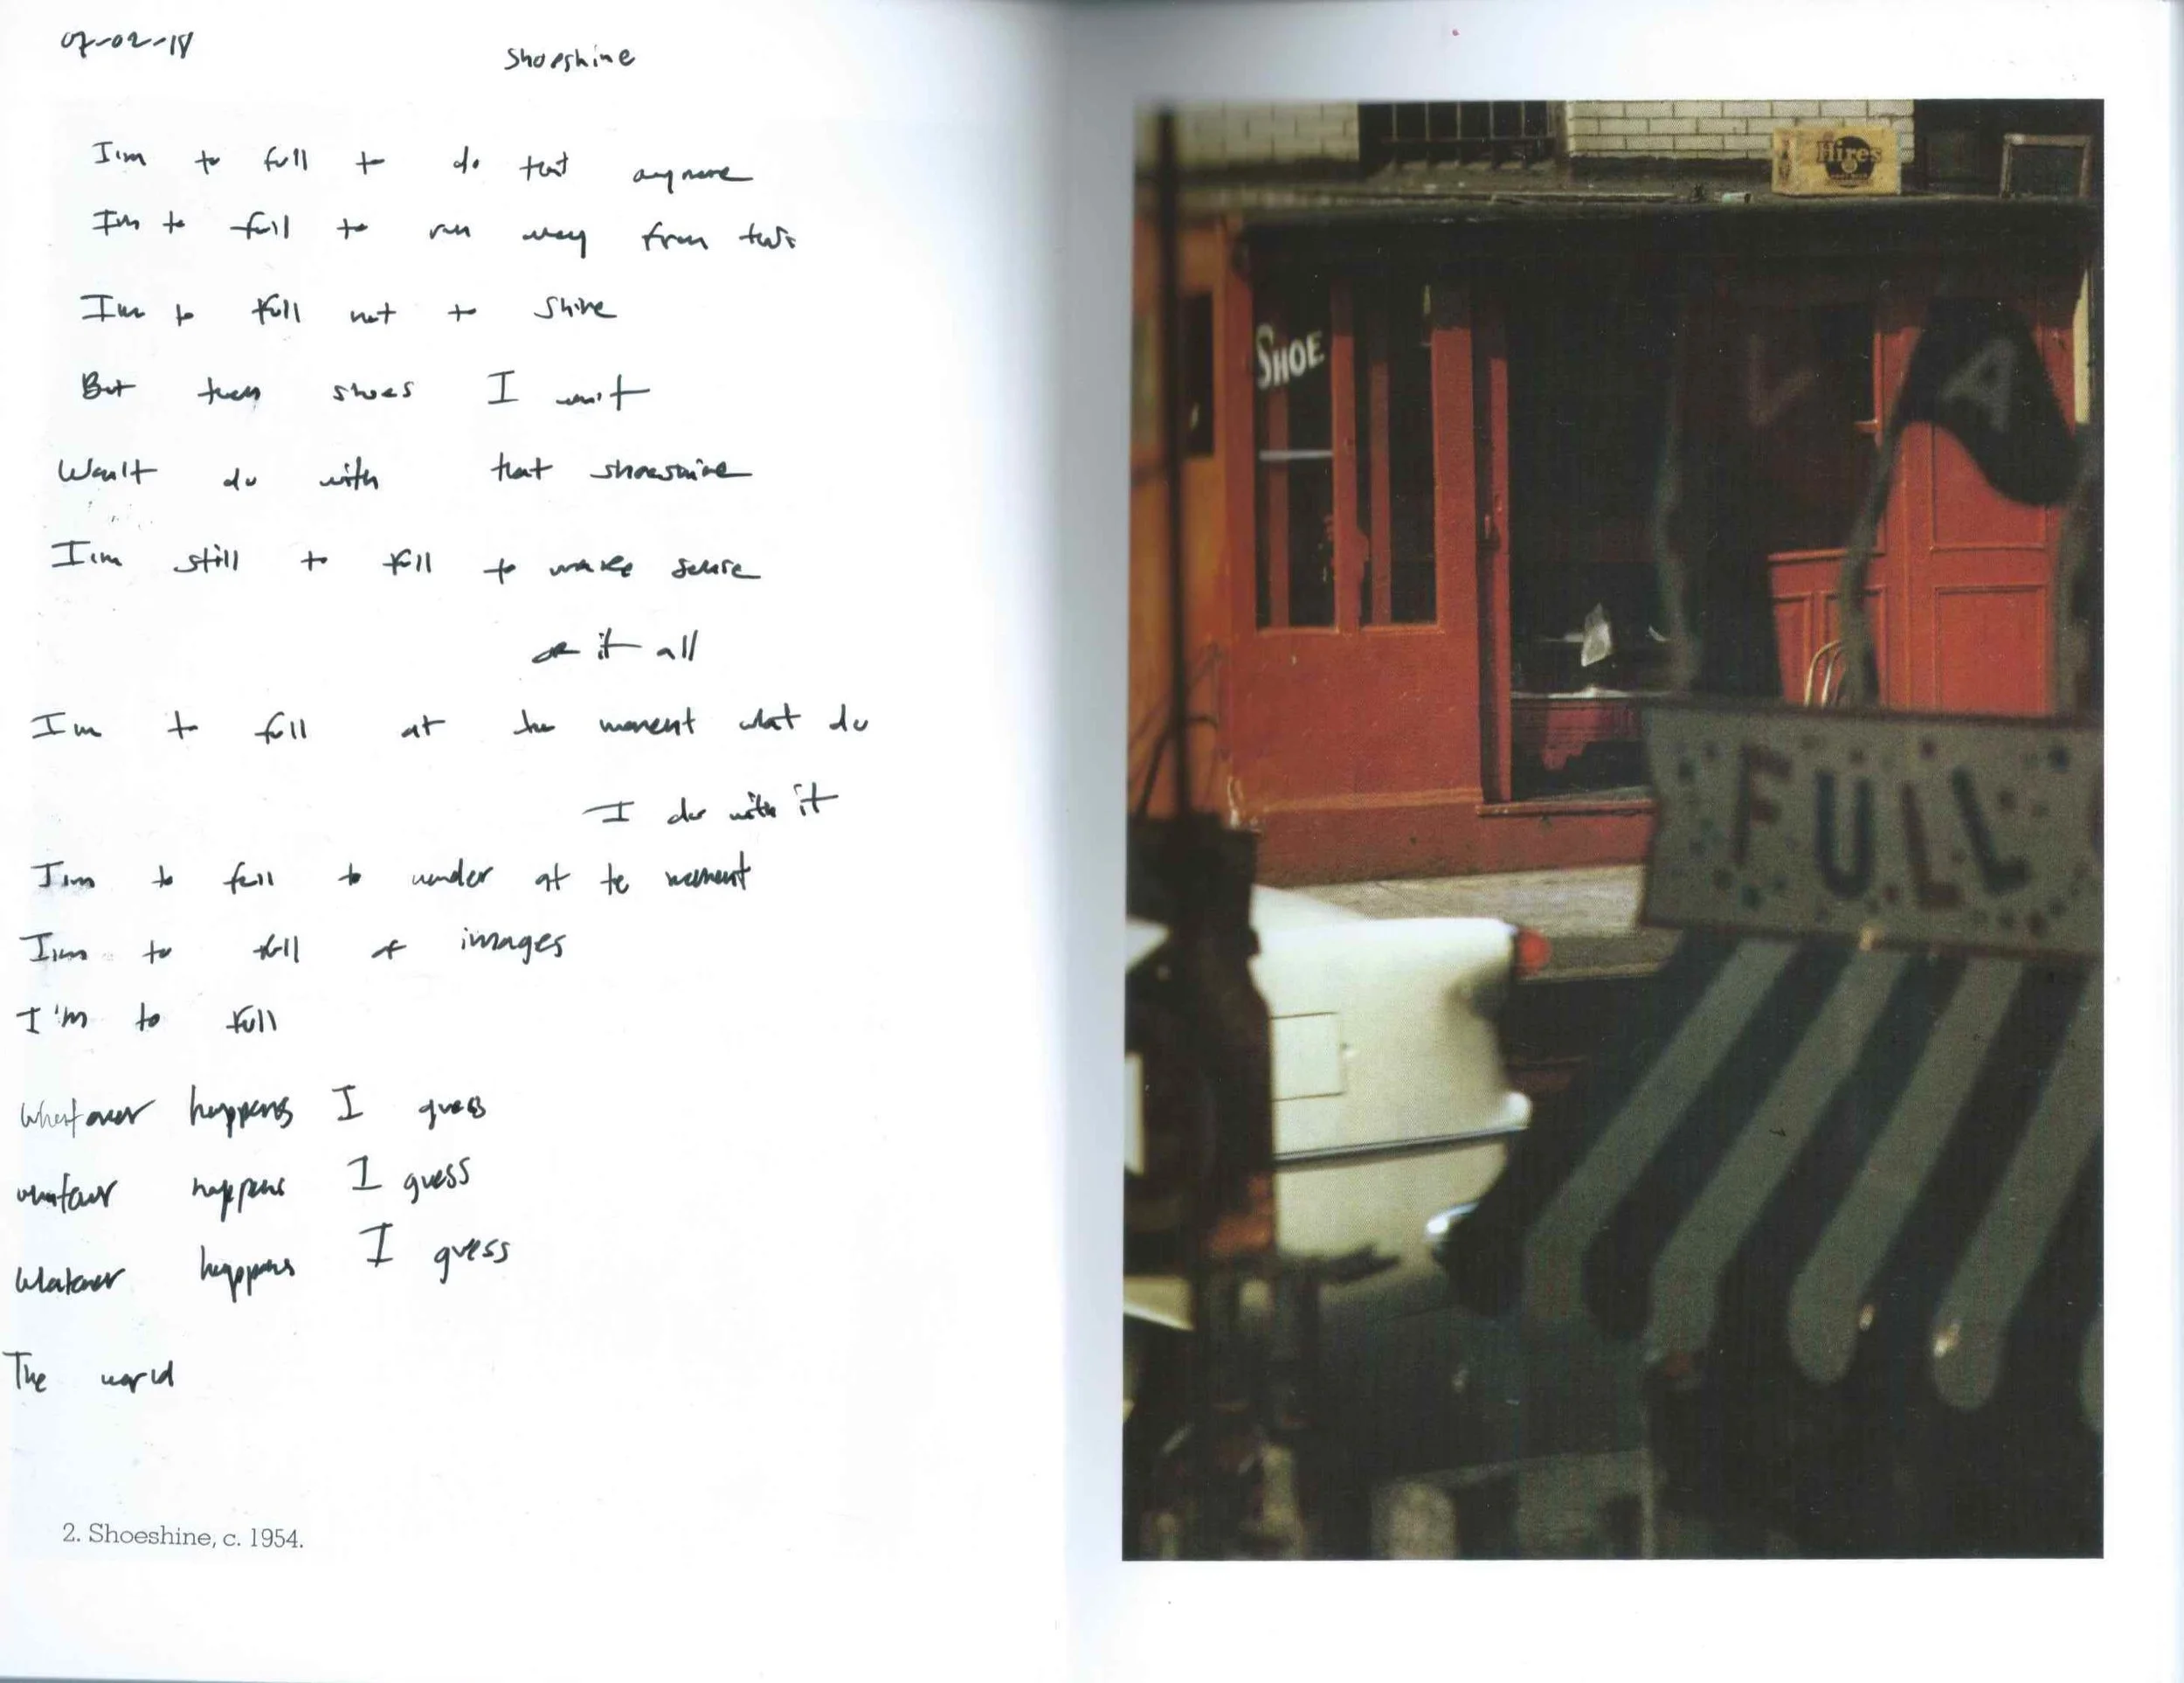 07-02-18
Shoeshine
I'm to full to do that anymore
I'm to full to run away from this
I'm to full not to shine
But them shoes I won't
Won't do with that shoeshine
I'm still to full to make sense
of it all
I'm to full at the moment what do
I do with it
I'm to full to wonder at the moment
I'm to full of images
I'm to full
Whatever happens I guess
whatever happens I guess
Whatever happens I guess
The world
2. Shoeshine, c. 1954.
Hires
SHOE
L A
FULL